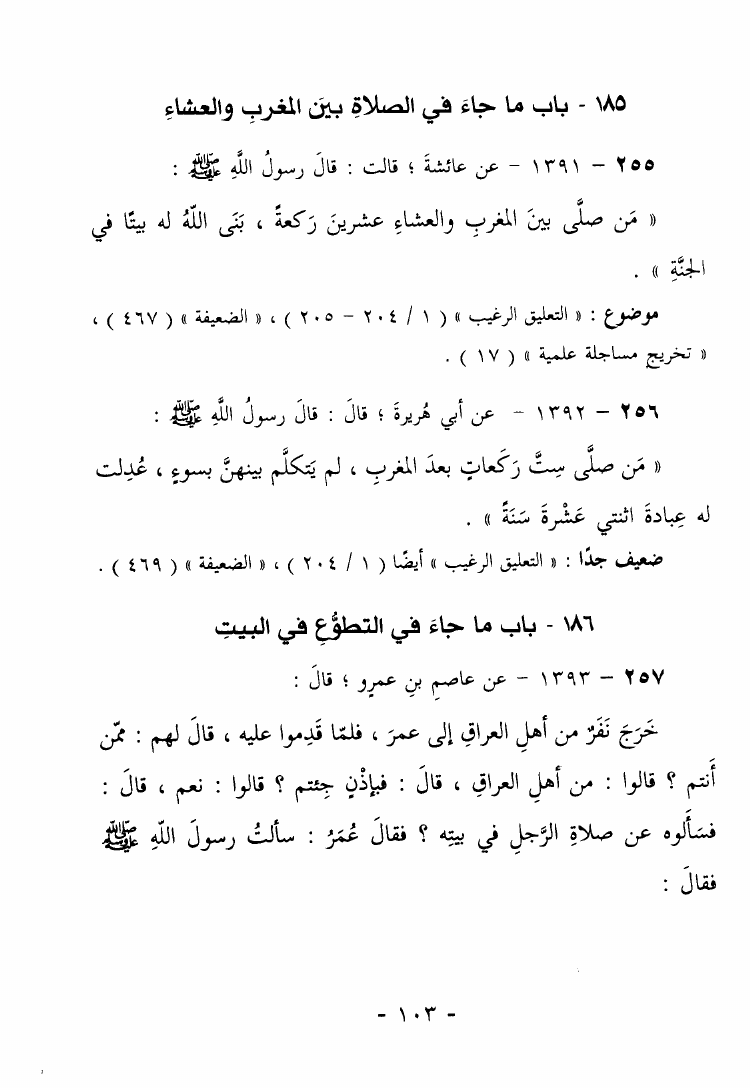 ١٨٥ - باب ما جاءَ في الصلاةِ بينَ المغربِ والعشاءِ
٢٥٥ - ١٣٩١ - عن عائشةَ ؛ قالت : قالَ رسولُ اللَّهِ ﷺ :
« مَن صلَّى بينَ المغربِ والعشاءِ عشرينَ رَكعةً ، بَنَى اللَّهُ له بيتًا في
الجنَّةِ » .
موضوع : « التعليق الرغيب » ( ١ / ٢٠٤ - ٢٠٥ ) ، « الضعيفة » ( ٤٦٧ ) ،
« تخريج مساجلة علمية » ( ١٧ ) .
٢٥٦ - ١٣٩٢ - عن أبي هُريرةَ ؛ قالَ : قالَ رسولُ اللَّهِ ﷺ :
« مَن صلَّى سِتَّ رَكَعاتٍ بعدَ المغربِ ، لم يَتكلَّم بينهنَّ بسوءٍ ، عُدِلت
له عِبادةَ اثنتي عَشْرةَ سَنَةً » .
ضعيف جدًا : « التعليق الرغيب » أيضًا ( ١ / ٢٠٤ ) ، « الضعيفة » ( ٤٦٩ ) .
١٨٦ - باب ما جاءَ في التطوُّعِ في البيتِ
٢٥٧ - ١٣٩٣ - عن عاصمِ بنِ عمرٍو ؛ قالَ :
خَرَجَ نَفَرٌ من أهلِ العراقِ إلى عمرَ ، فلمّا قَدِموا عليه ، قالَ لهم : ممّن
أَنتم ؟ قالوا : من أهلِ العراقِ ، قالَ : فبإذْنٍ جِئتم ؟ قالوا : نعم ، قالَ :
فسَألوه عن صلاةِ الرَّجلِ في بيتِه ؟ فقالَ عُمَرُ : سألتُ رسولَ اللَّهِ ﷺ
فقالَ :
- ١٠٣ -